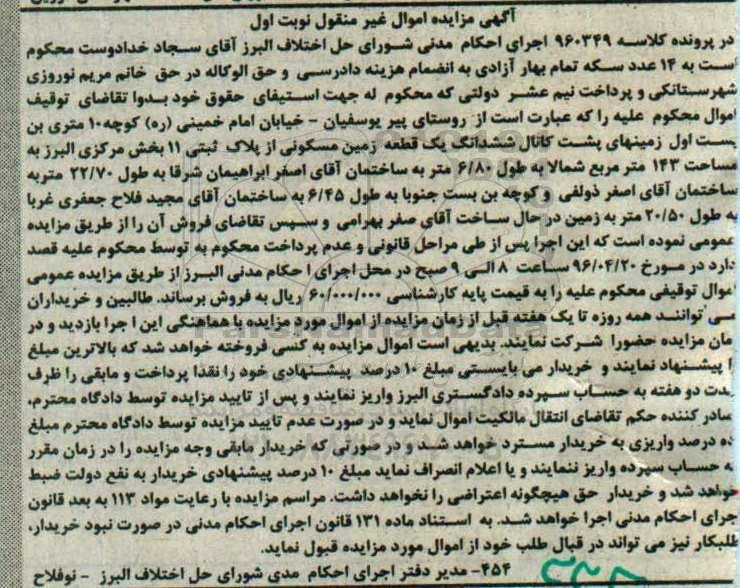 آگهی مزایده اموال غیر منقول نوبت اول
در پرونده کلاسه ۹۶۰۳۴۹ اجرای احکام مدنی شورای حل اختلاف البرز آقای سجاد خدادوست محکوم
است به ۱۴ عدد سکه تمام بهار آزادی به انضمام هزینه دادرسی و حق الوکاله در حق خانم مریم نوروزی
شهرستانکی و پرداخت نیم عشر دولتی که محکوم له جهت استیفای حقوق خود بدوا تقاضای توقیف
اموال محکوم علیه را که عبارت است از روستای پیر یوسفیان - خیابان امام خمینی (ره) کوچه۱۰ متری بن
بست اول زمینهای پشت کانال ششدانگ یک قطعه زمین مسکونی از پلاک ثبتی ۱۱ بخش مرکزی البرز به
مساحت ۱۴۳ متر مربع شمالا به طول ۶/۸۰ متر به ساختمان آقای اصغر ابراهیمان شرقا به طول ۲۲/۷۰ متربه
ساختمان آقای اصغر ذولفی و کوچه بن بست جنوبا به طول ۶/۴۵ به ساختمان آقای مجید فلاح جعفری غربا
به طول ۲۰/۵۰ متر به زمین در حال ساخت آقای صفر بهرامی و سپس تقاضای فروش آن را از طریق مزایده
عمومی نموده است که این اجرا پس از طی مراحل قانونی و عدم پرداخت محکوم به توسط محکوم علیه قصد
دارد در مورخ ۹۶/۰۴/۲۰ ساعت ۸ الی ۹ صبح در محل اجرای ا حکام مدنی البرز از طریق مزایده عمومی
اموال توقیفی محکوم علیه را به قیمت پایه کارشناسی ۶۰/۰۰۰/۰۰۰ ریال به فروش برساند. طالبین و خریداران
می توانند همه روزه تا یک هفته قبل از زمان مزایده از اموال مورد مزایده با هماهنگی این ا جرا بازدید و در
زمان مزایده حضورا شرکت نمایند. بدیهی است اموال مزایده به کسی فروخته خواهد شد که بالاترین مبلغ
را پیشنهاد نمایند و خریدار می بایستی مبلغ ۱۰ درصد پیشنهادی خود را نقدا پرداخت و مابقی را ظرف
مدت دو هفته به حساب سپرده دادگستری البرز واریز نمایند و پس از تایید مزایده توسط دادگاه محترم،
صادر کننده حکم تقاضای انتقال مالکیت اموال نماید و در صورت عدم تایید مزایده توسط دادگاه محترم مبلغ
ده درصد واریزی به خریدار مسترد خواهد شد و در صورتی که خریدار مابقی وجه مزایده را در زمان مقرر
به حساب سپرده واریز ننمایند و یا اعلام انصراف نماید مبلغ ۱۰ درصد پیشنهادی خریدار به نفع دولت ضبط
خواهد شد و خریدار حق هیچگونه اعتراضی را نخواهد داشت. مراسم مزایده با رعایت مواد ۱۱۳ به بعد قانون
اجرای احکام مدنی اجرا خواهد شد. به استناد ماده ۱۳۱ قانون اجرای احکام مدنی در صورت نبود خریدار،
طلبکار نیز می تواند در قبال طلب خود از اموال مورد مزایده قبول نماید.
۴۵۴- مدیر دفتر اجرای احکام مدی شورای حل اختلاف البرز - نوفلاح